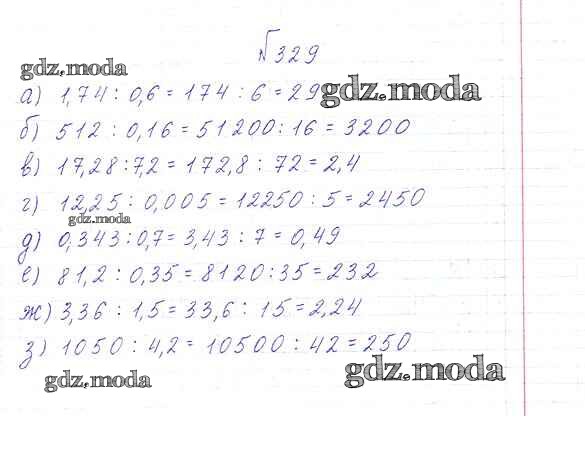 №329
gdz.moda
а) 1,74 : 0,6 = 174 : 6 = 29
gdz.moda
б) 512 : 0,16 = 51200 : 16 = 3200
в) 17,28 : 7,2 = 172,8 : 72 = 2,4
г) 12,25 : 0,005 = 12250 : 5 = 2450
gdz.moda
д) 0,343 : 0,7 = 3,43 : 7 = 0,49
е) 81,2 : 0,35 = 8120 : 35 = 232
ж) 3,36 : 1,5 = 33,6 : 15 = 2,24
з) 1050 : 4,2 = 10500 : 42 = 250
gdz.moda
gdz.moda